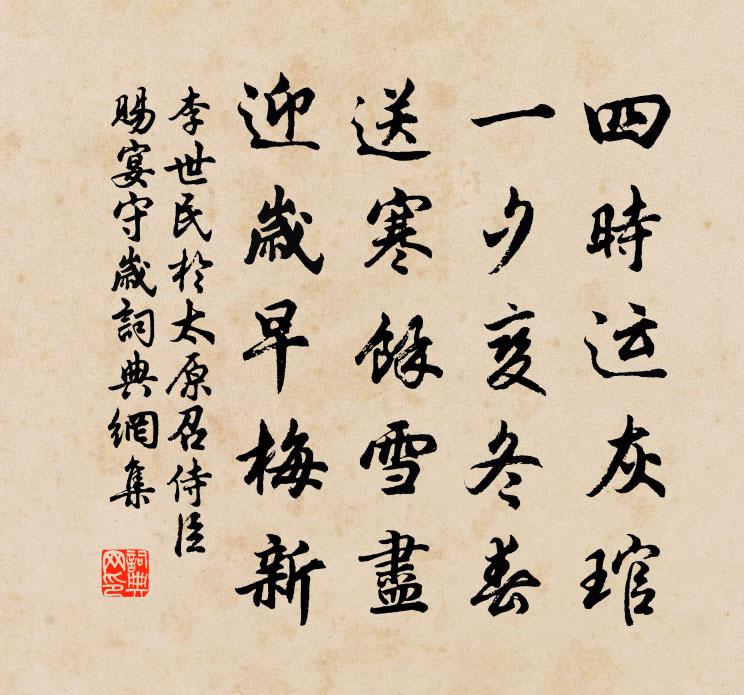 四時运灰琯
一夕变冬春
送寒餘雪盡
迎歲早梅新
李世民於太原召侍臣
賜宴守歲詞典網集
詞典网印